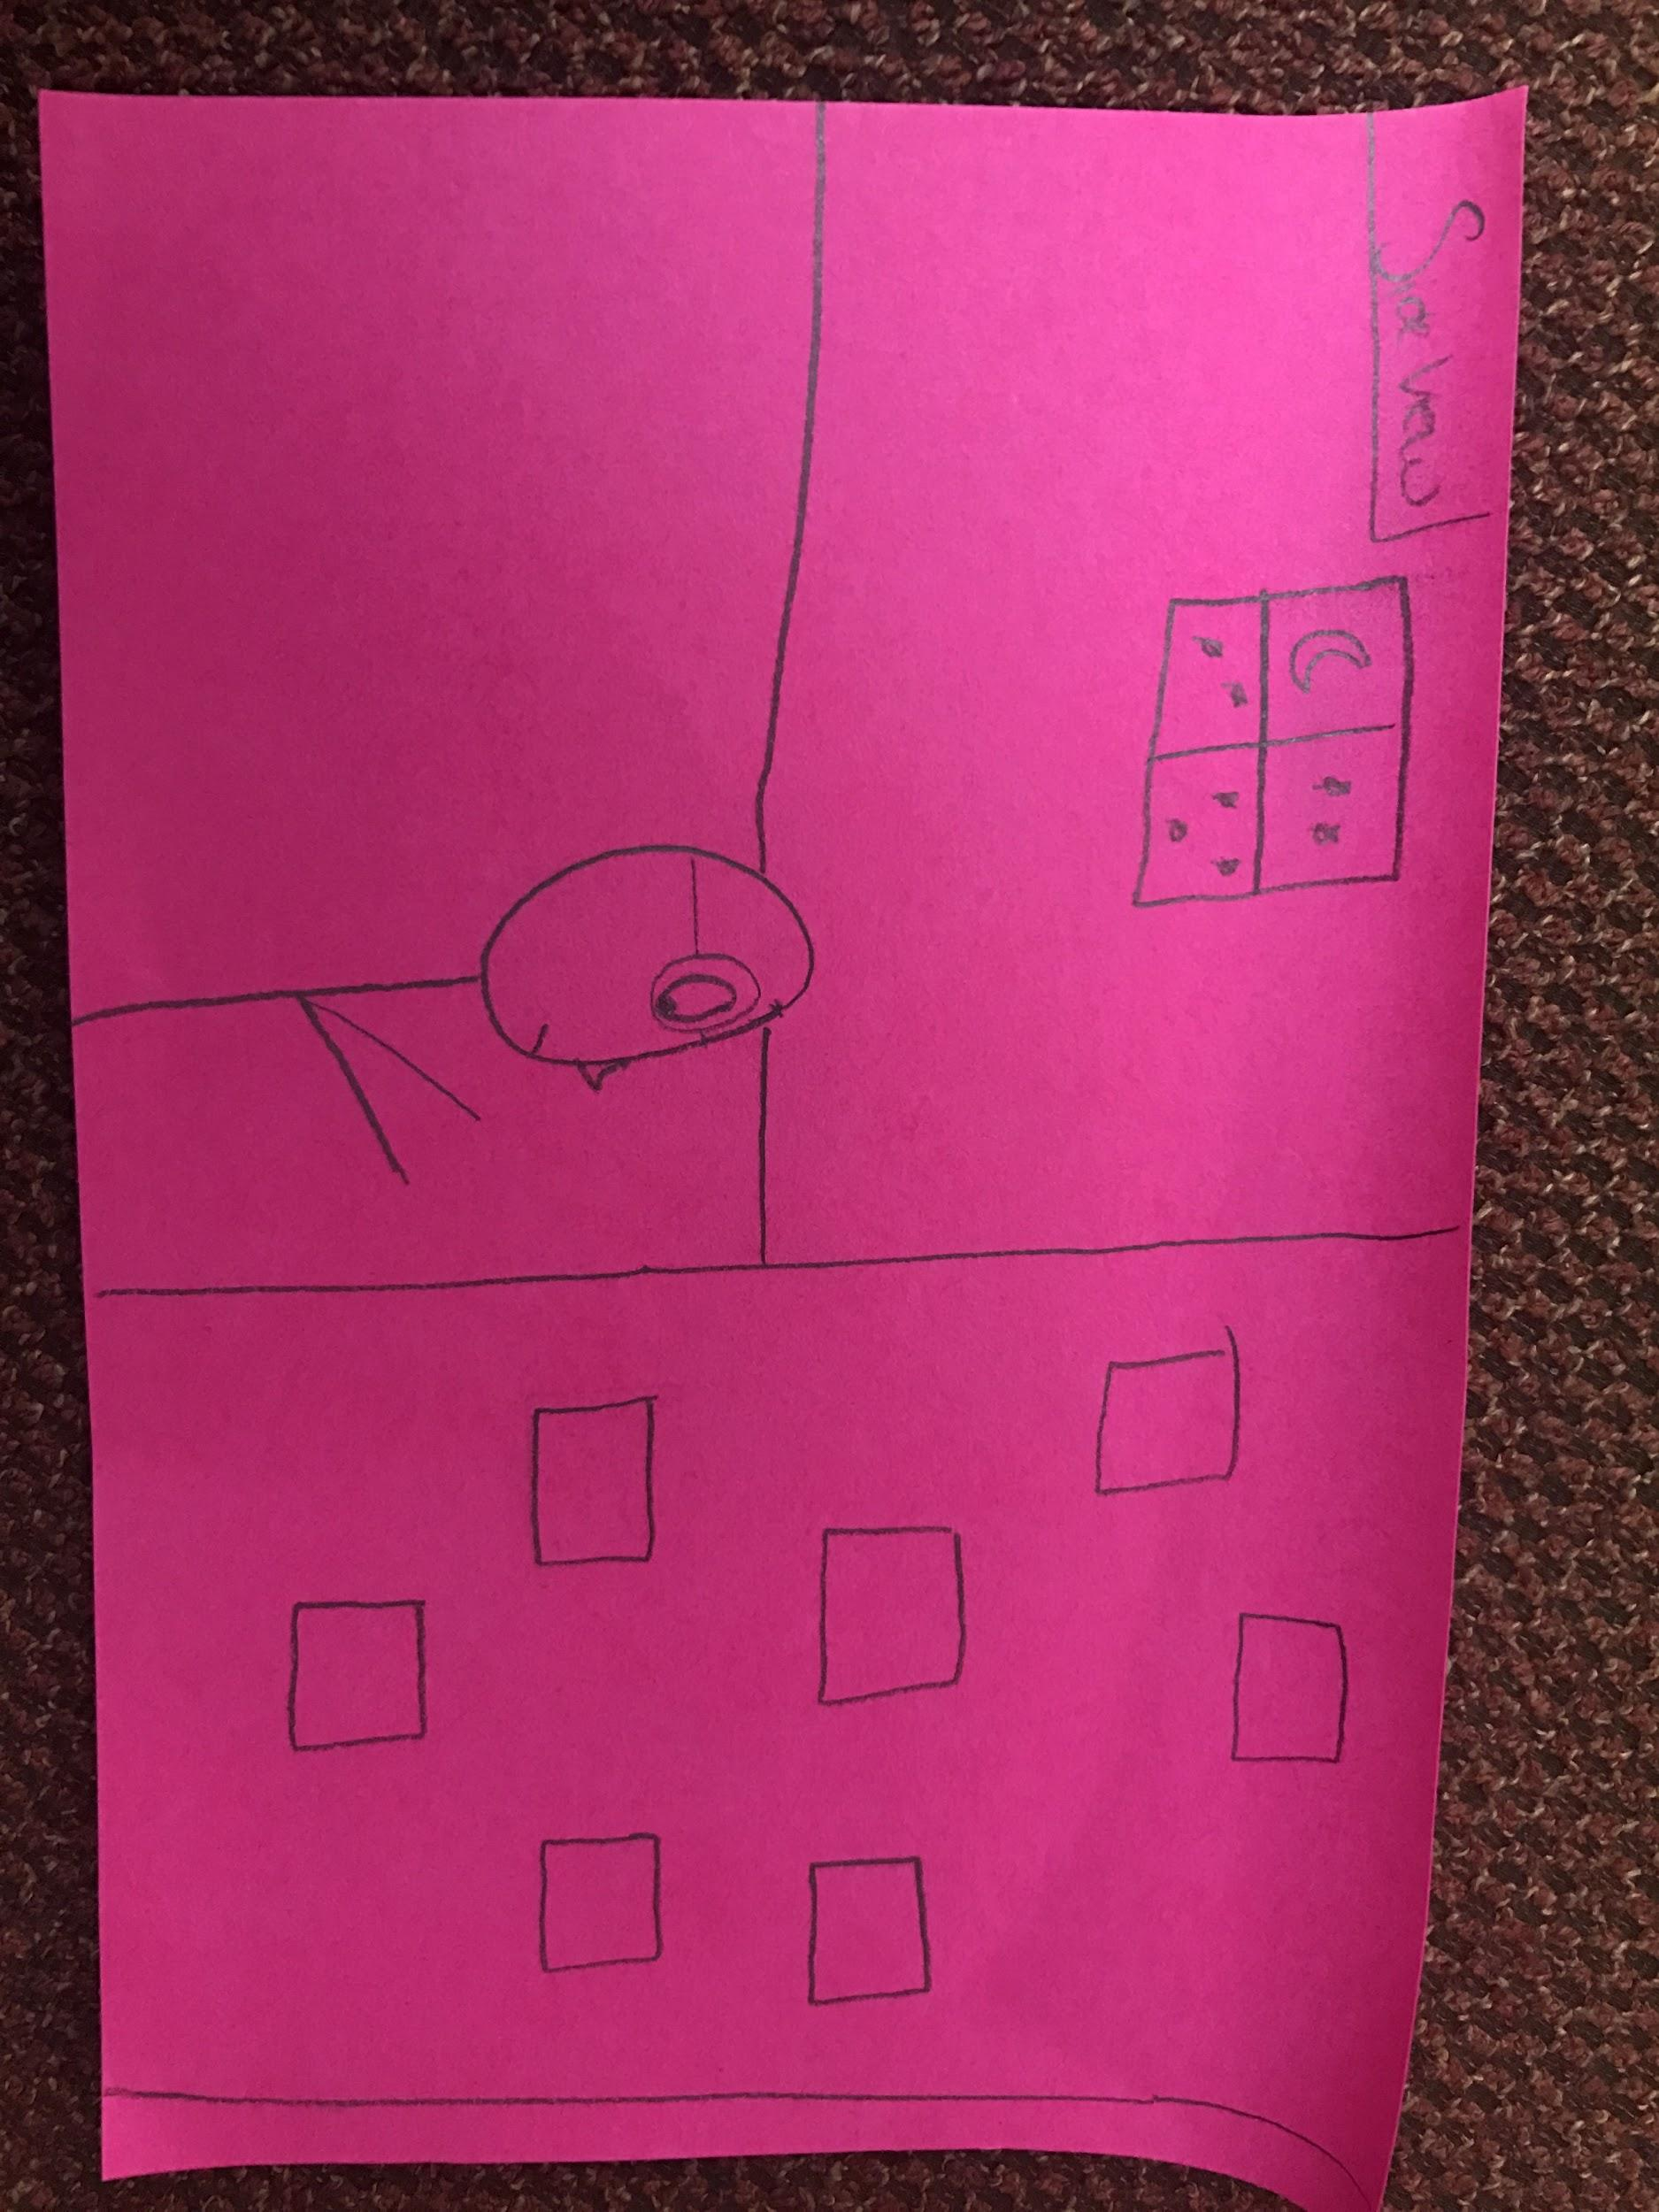 Side View